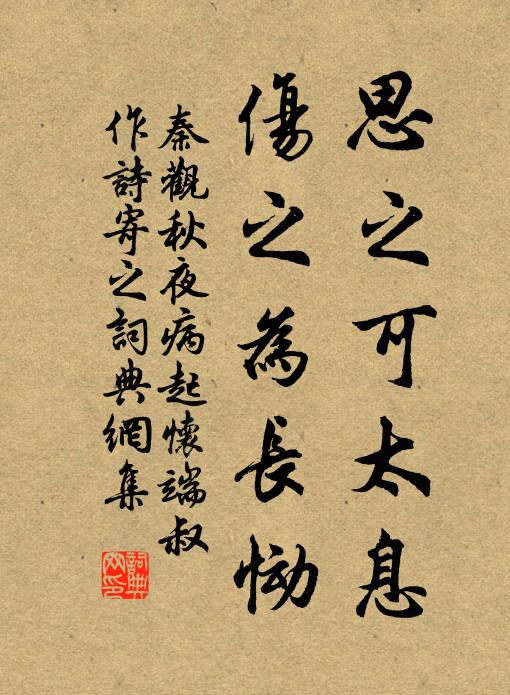 思之可太息
傷之為長慟
秦觀秋夜病起懷端叔
作詩寄之詞典網集
詞典
网印